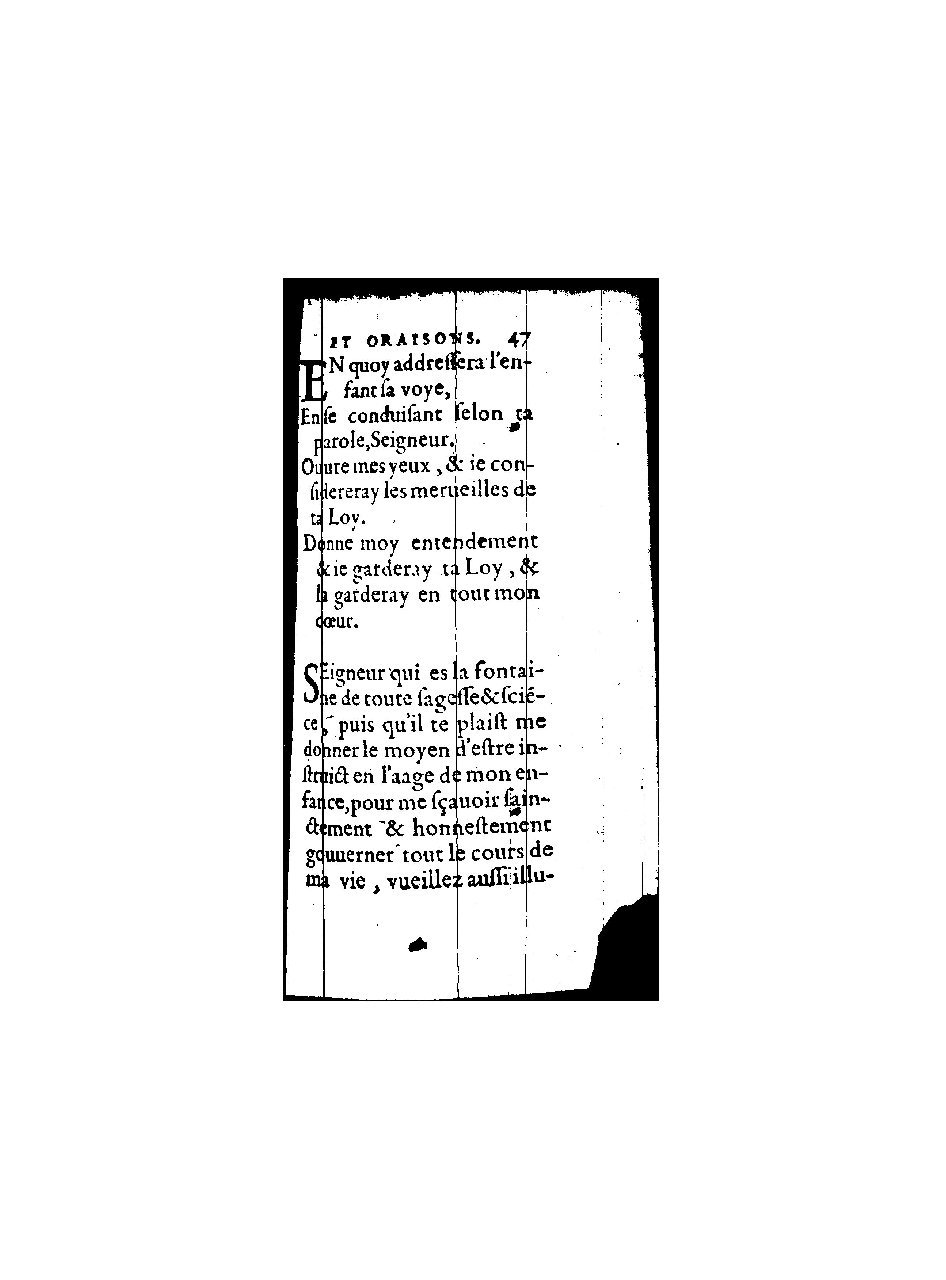 ET ORAISONS. 47
EN quoy addreſſera l'en-
fant ſa voye,
En ſe conduiſant ſelon ta
parole, Seigneur.
Ouure mes yeux, & ie con-
ſidereray les merueilles de
ta Loy.
Donne moy entendement
& ie garderay ta Loy, &
la garderay en tout mon
cœur.
SEigneur qui es la fontai-
ne de toute ſageſſe & ſcié-
ce, puis qu'il te plaiſt me
donner le moyen d'eſtre in-
ſtruict en l'aage de mon en-
fance, pour me ſçauoir ſain-
ctement & honneſtement
gouuerner tout le cours de
ma vie, vueillez auſſi illu-